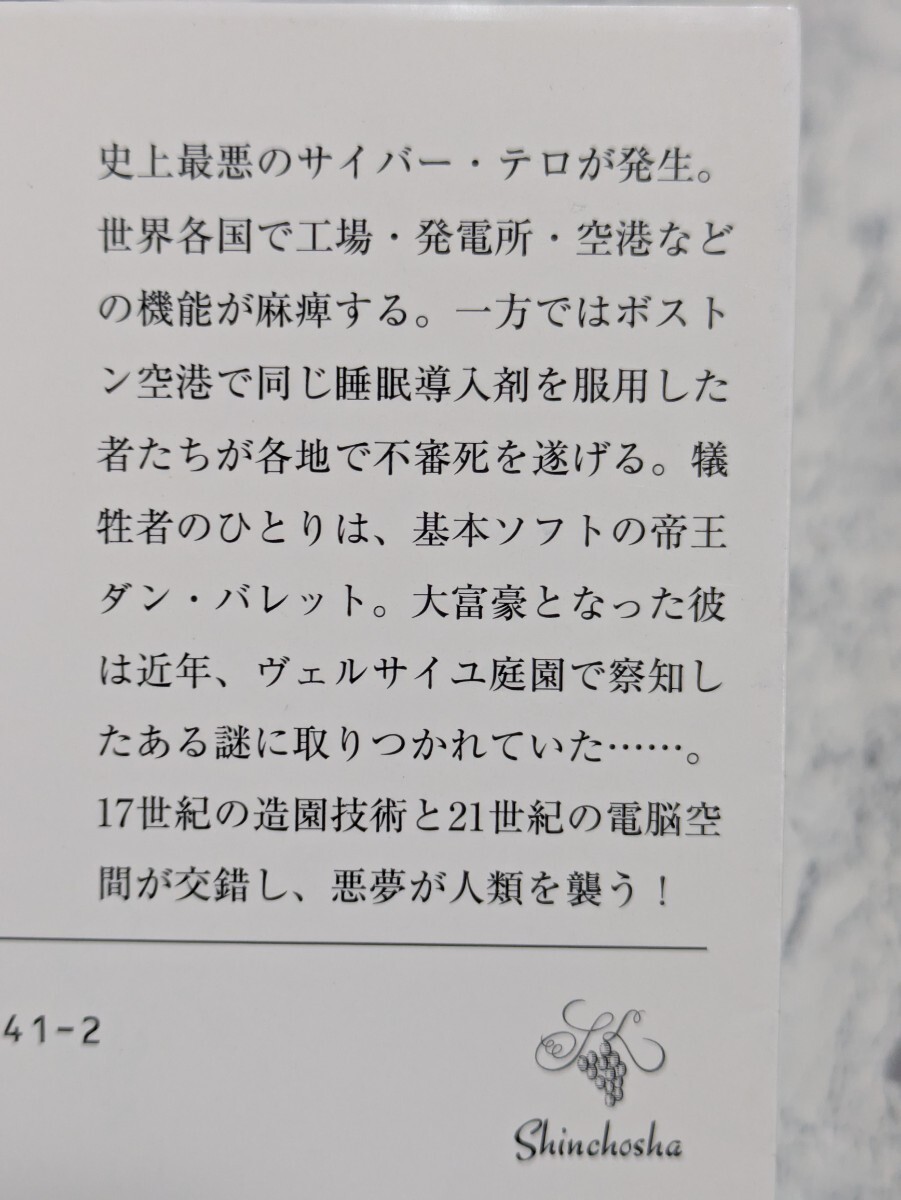 史上最悪のサイバー・テロが発生。
世界各国で工場・発電所・空港など
の機能が麻痺する。一方ではボスト
ン空港で同じ睡眠導入剤を服用した
者たちが各地で不審死を遂げる。犠
牲者のひとりは、基本ソフトの帝王
ダン・バレット。大富豪となった彼
は近年、ヴェルサイユ庭園で察知し
たある謎に取りつかれていた……。
17世紀の造園技術と21世紀の電脳空
間が交錯し、悪夢が人類を襲う！
41-2
Shinchosha